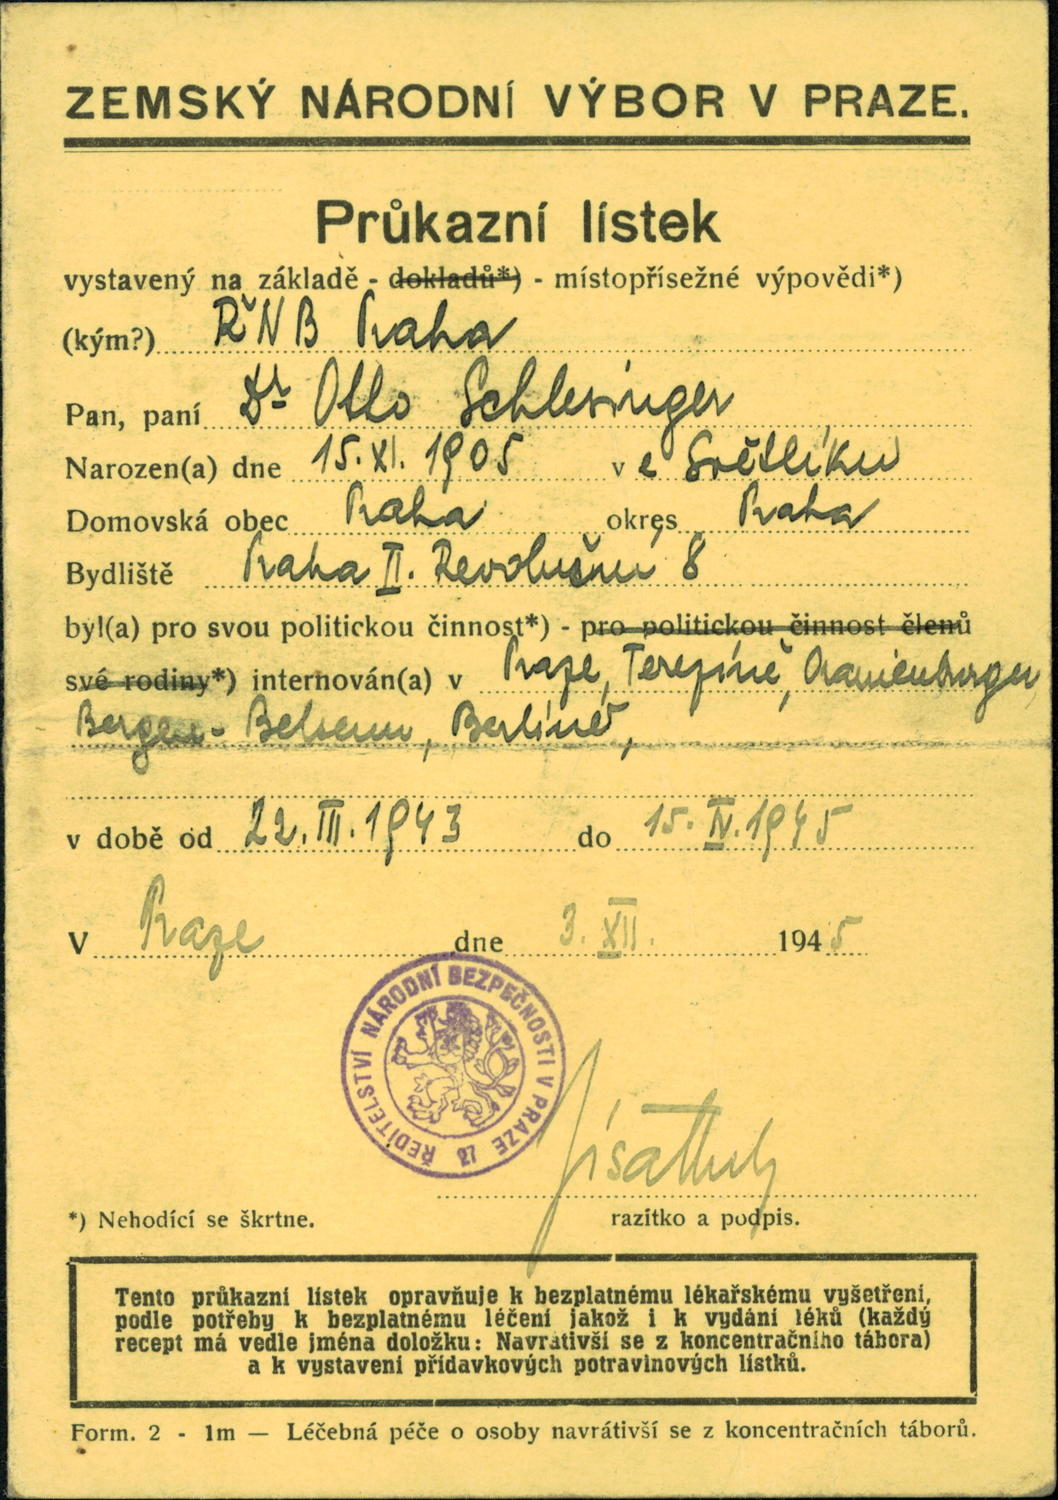 ZEMSKÝ NÁRODNÍ VÝBOR V PRAZE.
Průkazní lístek
vystavený na základě - dokladů*) - místopřísežné výpovědi*)
(kým?) ŘNB Praha
Pan, paní Dr Otto Schlesinger
Narozen(a) dne 15.XI. 1905 v e Světlíku
Domovská obec Praha okres Praha
Bydliště Praha II. Revoluční 8
byl(a) pro svou politickou činnost*) - pro politickou činnost členů
své rodiny*) internován(a) v Praze, Terezíně, Oranienburgu,
Bergen-Belsenu, Berlíně,
v době od 22.III.1943 do 15.IV.1945
V Praze dne 3. XII. 1945
ŘEDITELSTVÍ NÁRODNÍ BEZPEČNOSTI V PRAZE
*) Nehodící se škrtne.
razítko a podpis.
Tento průkazní lístek opravňuje k bezplatnému lékařskému vyšetření,
podle potřeby k bezplatnému léčení jakož i k vydání léků (každý
recept má vedle jména doložku: Navrátivší se z koncentračního tábora)
a k vystavení přídavkových potravinových lístků.
Form. 2 - 1m — Léčebná péče o osoby navrátivší se z koncentračních táborů.